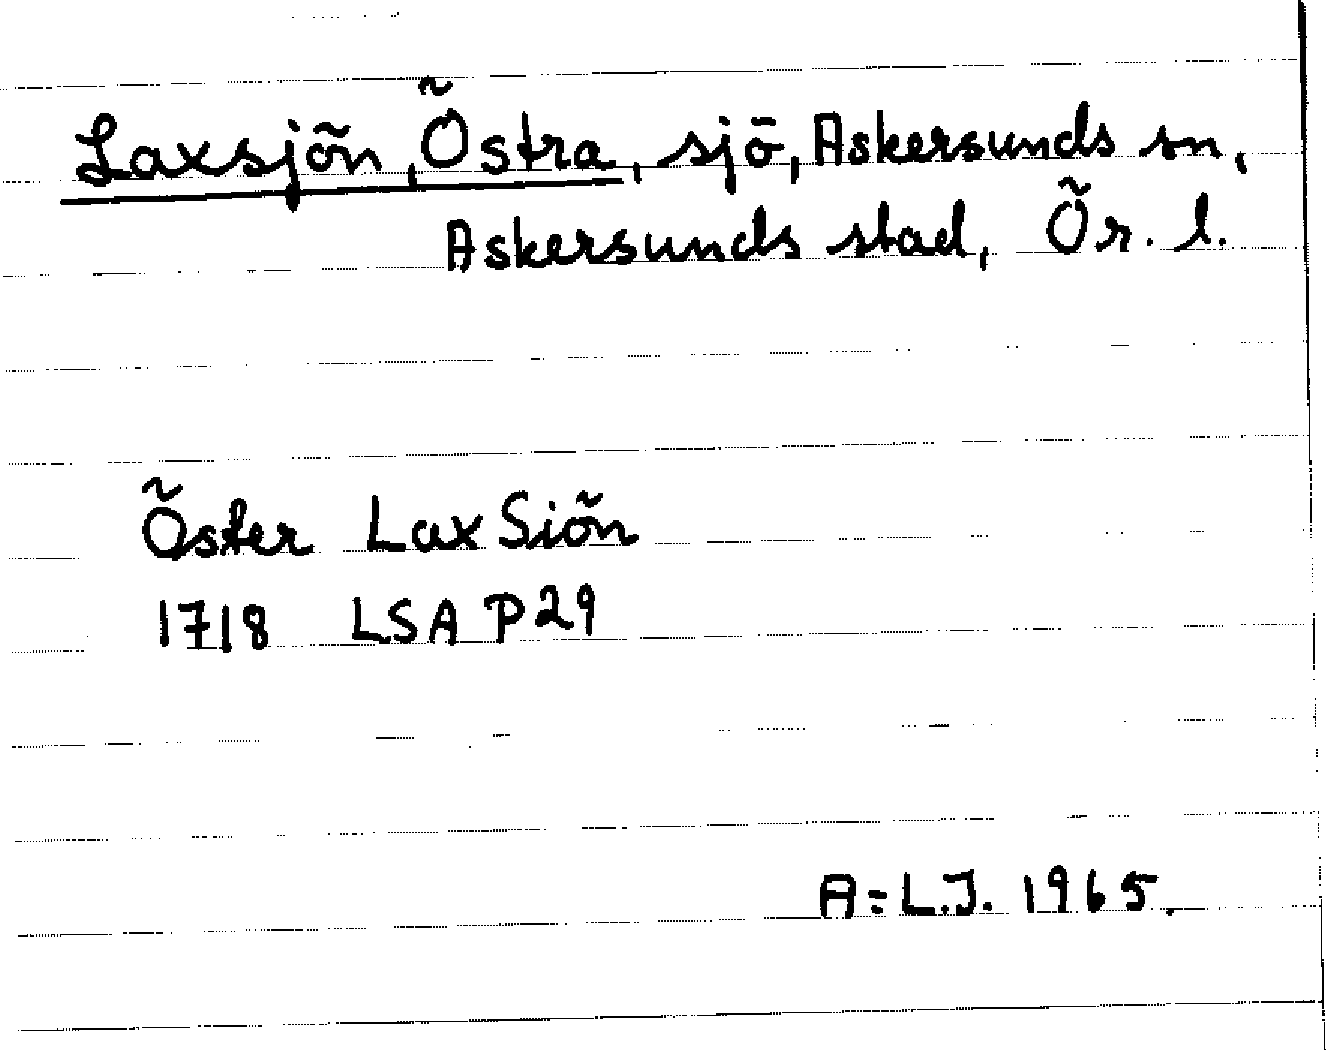 Laxsjön, Östra, sjö, Askersunds sn,
Askersunds stad, Ör. l.
Öster Lax Siön
1718 LSA P29
A=L.J. 1965.